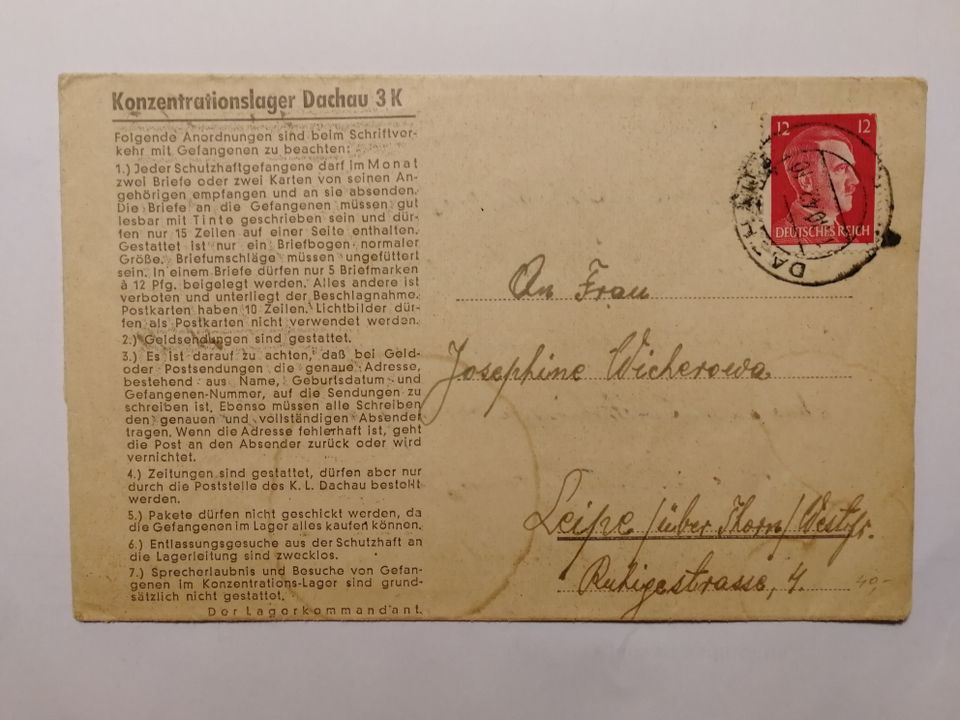 Konzentrationslager Dachau 3 K
Folgende Anordnungen sind beim Schriftver-
kehr mit Gefangenen zu beachten:
1.) Jeder Schutzhaftgefangene darf im Monat
zwei Briefe oder zwei Karten von seinen An-
gehörigen empfangen und an sie absenden.
Die Briefe an die Gefangenen müssen gut
lesbar mit Tinte geschrieben sein und dür-
fen nur 15 Zeilen auf einer Seite enthalten.
Gestattet ist nur ein Briefbogen normaler
Größe. Briefumschläge müssen ungefüttert
sein. In einem Briefe dürfen nur 5 Briefmarken
à 12 Pfg. beigelegt werden. Alles andere ist
verboten und unterliegt der Beschlagnahme.
Postkarten haben 10 Zeilen. Lichtbilder dür-
fen als Postkarten nicht verwendet werden.
2.) Geldsendungen sind gestattet.
3.) Es ist darauf zu achten, daß bei Geld-
oder Postsendungen die genaue Adresse,
bestehend aus Name, Geburtsdatum und
Gefangenen-Nummer, auf die Sendungen zu
schreiben ist. Ebenso müssen alle Schreiben
den genauen und vollständigen Absender
tragen. Wenn die Adresse fehlerhaft ist, geht
die Post an den Absender zurück oder wird
vernichtet.
4.) Zeitungen sind gestattet, dürfen aber nur
durch die Poststelle des K. L. Dachau bestellt
werden.
5.) Pakete dürfen nicht geschickt werden, da
die Gefangenen im Lager alles kaufen können.
6.) Entlassungsgesuche aus der Schutzhaft an
die Lagerleitung sind zwecklos.
7.) Sprecherlaubnis und Besuche von Gefan-
genen im Konzentrations-Lager sind grund-
sätzlich nicht gestattet.
Der Lagerkommandant.
12 12
DEUTSCHES REICH
DACHAU
An Frau
Josephine Wicherowa
Leipe/über Thorn/Westpr.
Ruhigestrasse, 4.
40,-